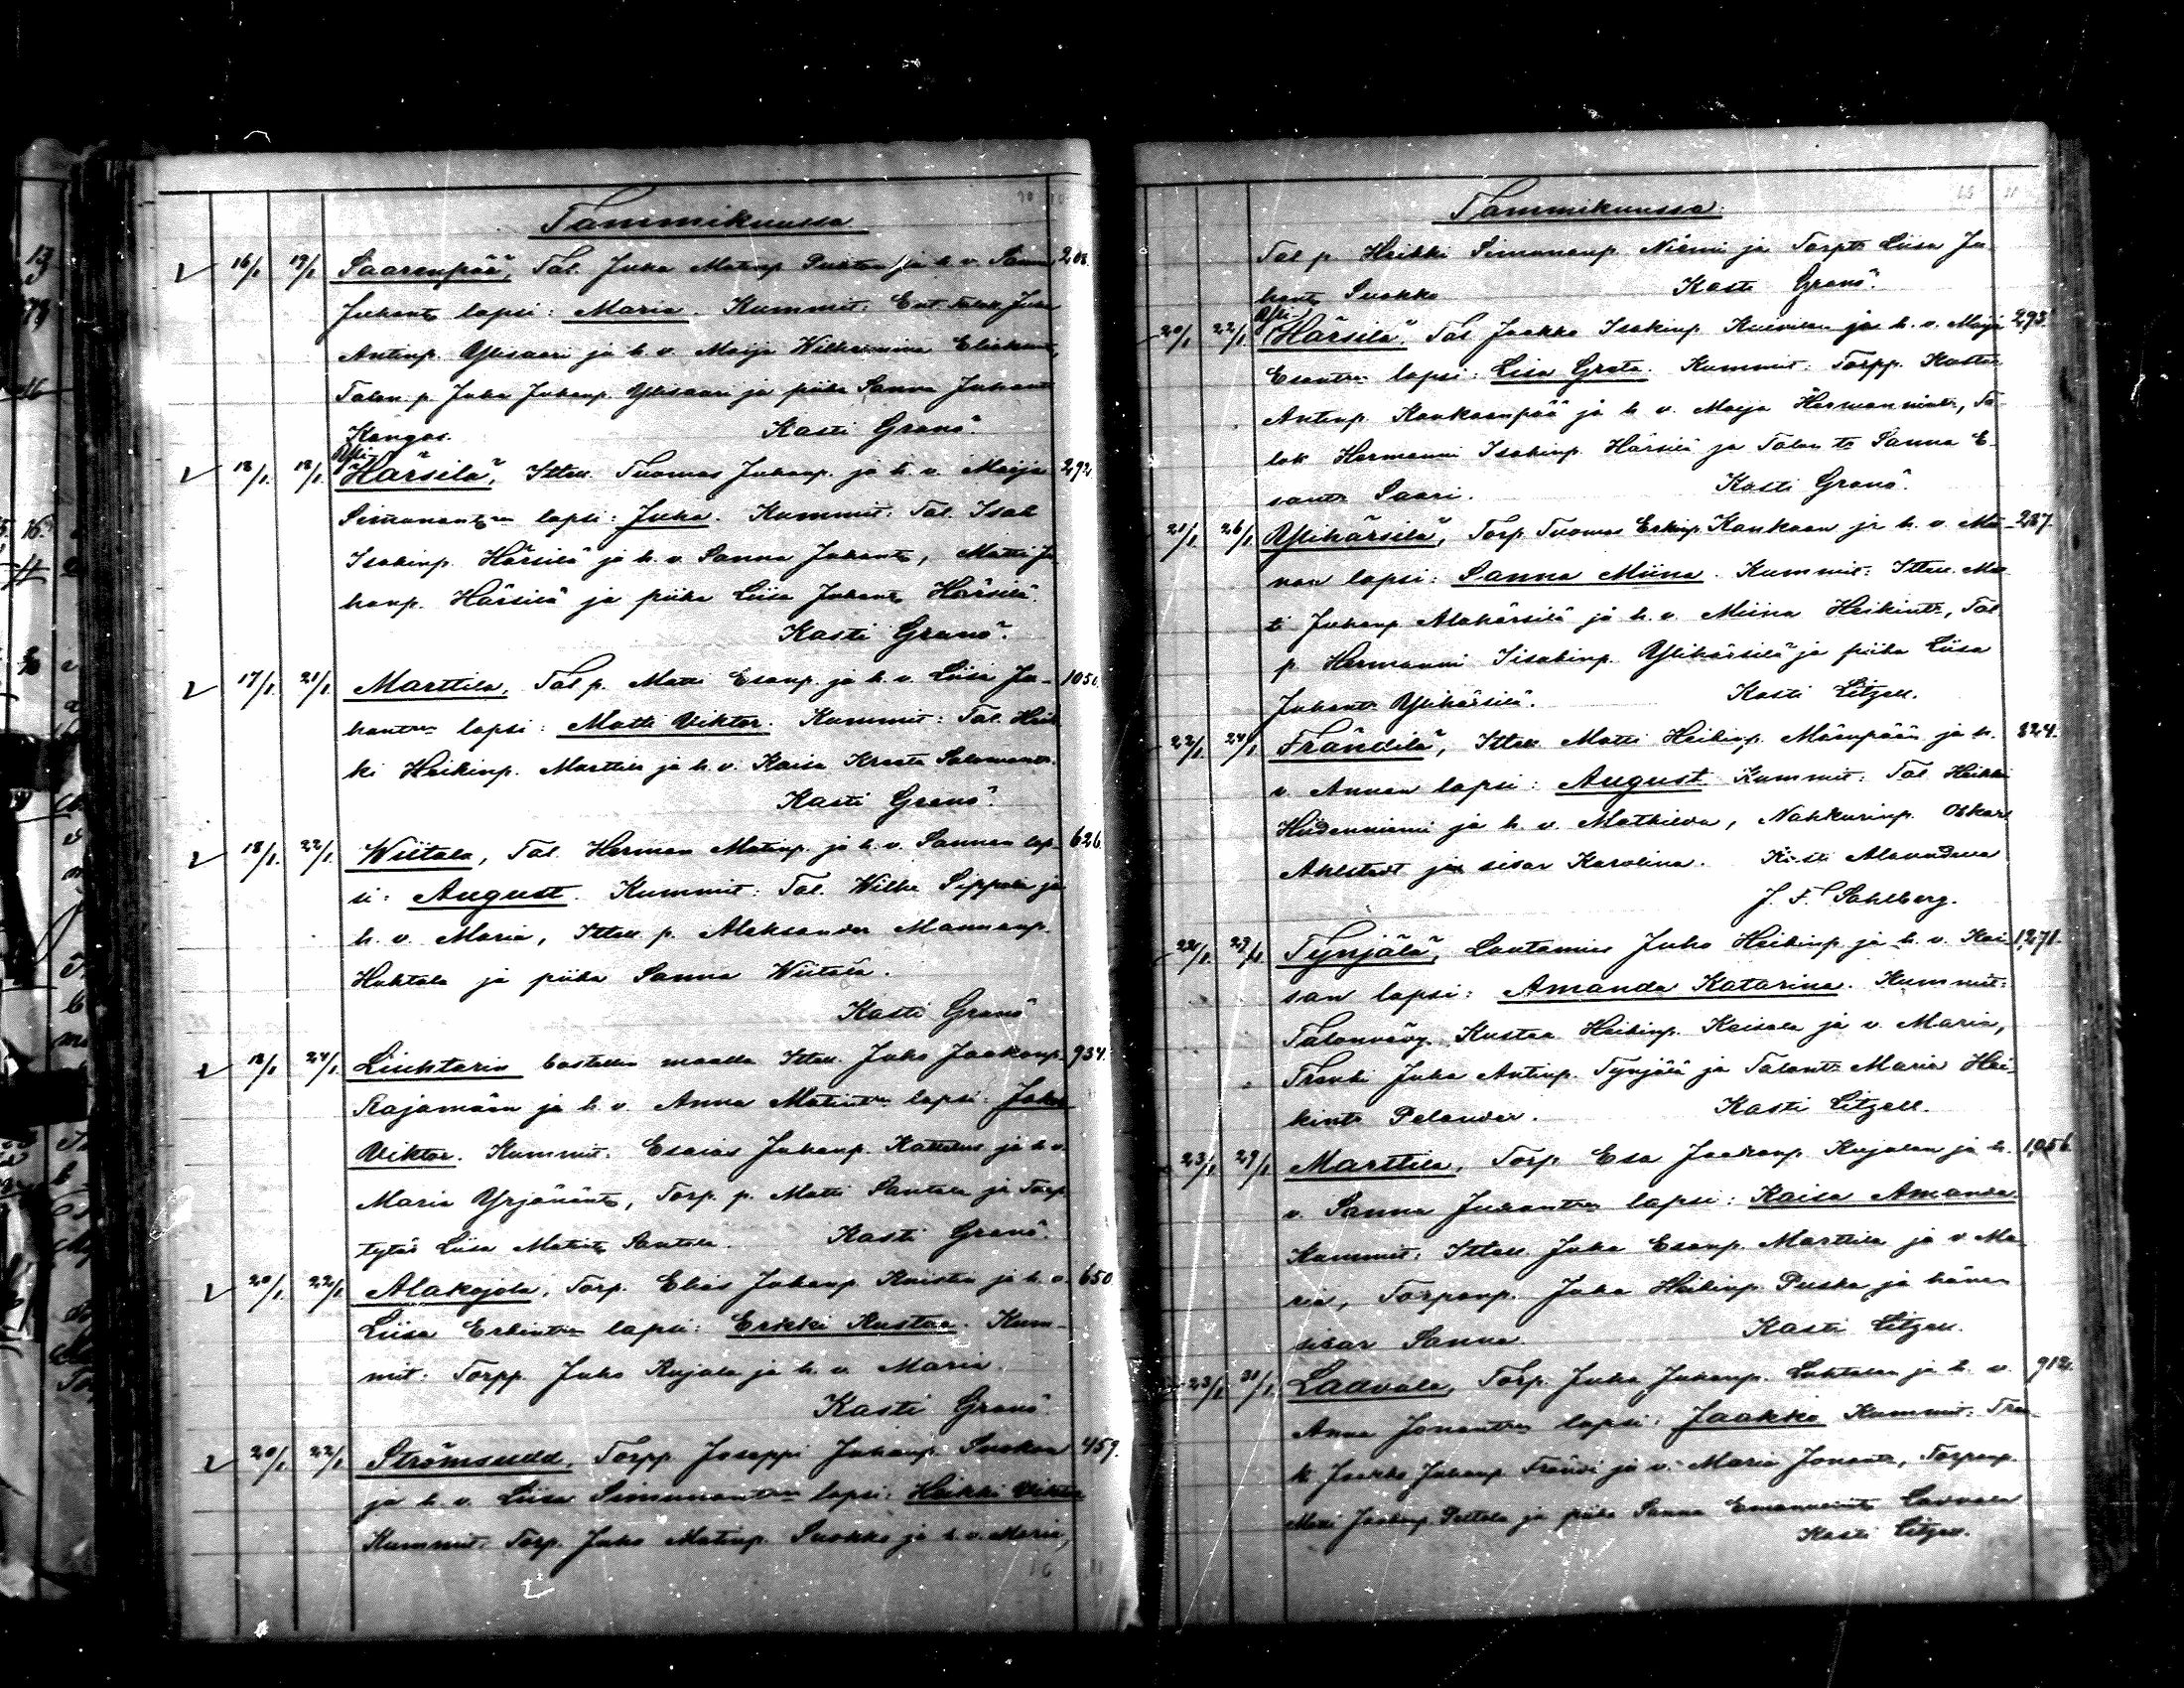 Tammikuussa
16/1 19/1 Saarenpää, Tal. Juha Matinp. ja h. v. Sanna 208.
Juhant lapsi: Maria. Kummit: Ent. Juha
Antinp. Ylisaari ja h. v. Maija Wilhelmina
Talon p. Juha Juhanp. Ylisaari ja piika Sanna Juhant
Kangas. Kasti Granö.
18/1 18/1 Yli-Härsilä, Ittell. Tuomas Juhanp. ja h. v. Maija 292
Simonant:n lapsi: Juha. Kummit: Tal. Isak
Isakinp. Härsilä ja h. v. Sanna Juhant, Matti Ju
hanp. Härsilä ja piika Liisa Juhant Härsilä.
Kasti Granö.
17/1 21/1 Marttila, Tal p. Matti Esanp. ja h. v. Liisa Ju- 1050.
hant:n lapsi: Matti Viktor. Kummit: Tal. Heik
ki Heikinp. Marttila ja h. v. Kaisa Kreeta Salomont.
Kasti Granö.
18/1 22/1 Wiitala, Tal. Herman Matinp. ja h. v. Sannan lap- 626
si: August. Kummit: Tal. Wilho Sippola ja
h. v. Maria, Ittell. p. Aleksander Mannanp.
Huhtala ja piika Sanna Wiitala.
Kasti Granö
18/1 24/1 Liuhtarin bostellin maalla Ittell. Juho Jaakonp. 934.
Rajamäen ja h. v. Anna Matint:n lapsi: Juho
Viktor. Kummit: Esaias Juhanp. ja h. v.
Maria Yrjönänt, Torp. p. Matti Santala ja Torp.
tytär Liisa Matint Santala. Kasti Granö.
20/1 22/1 Alakojola, Torp. Elias Juhanp. ja h. v. 650
Liisa Erkint:n lapsi: Erkki Kustaa. Kum-
mit: Torpp. Juho Kujala ja h. v. Maria.
Kasti Granö.
20/1 22/1 Strömsudd, Torpp. Joseppi Juhanp. Suokon 459.
ja h. v. Liisa Simonant:n lapsi: Heikki Viktor
Kummit: Torp. Juho Matinp. Suokko ja h. v. Maria,
Tammikuussa.
Tal p. Heikki Simonanp. Niemi ja Torpt Liisa Ju
hant Suokko Kasti Granö.
20/1 22/1 Yli-Härsilä. Tal. Jaakko Isakinp. ja h. v. Maija 293.
Esant:n lapsi: Liisa Greta. Kummit: Torpp. Kustaa
Antinp. Kankaanpää ja h. v. Maija Hermannint, Ta
lok Hermanni Isakinp. Härsilä ja Talon t. Sanna E-
sant. Saari. Kasti Granö.
21/1 26/1 Ylihärsilä, Torp. Tuomas Erkinp. Kankaan ja h. v. Mii- 287.
nan lapsi: Sanna Miina. Kummit: Ittell. Mat
ti Juhanp. Alahärsilä ja h. v. Miina Heikint, Tal
p. Hermanni Iisakinp. Ylihärsilä ja piika Liisa
Juhant Ylihärsilä. Kasti Litzell.
22/1 24/1 Frändilä, Ittell. Matti Heikinp. Mäenpään ja h. 824.
v. Annan lapsi: August. Kummit: Tal. Heikki
Hiidenniemi ja h. v. Mathilda, Nahkurinp. Oskar
Ahlstedt ja sisar Karolina. Kasti Alavudella
J. F. Sahlberg.
22/1 29/1 Tynjälä, Lautamies Juho Heikinp. ja h. v. Kai- 1,271.
san lapsi: Amanda Katarina. Kummit:
Talonväv. Kustaa Heikinp. Keisala ja v. Maria,
Trenki Juha Antinp. Tynjälä ja Talont. Maria Hei-
kint Pelander. Kasti Litzell.
23/1 29/1 Marttila, Torp. Esa Jaakonp. Kujalan ja h. 1,056
v. Sanna Juhant:n lapsi: Kaisa Amanda
Kummit: Ittell. Juha Esanp. Marttila ja v. Ma-
ria, Torpanp. Juha Heikinp. Puska ja hänen
sisar Sanna. Kasti Litzell.
23/1 31/1 Ladvala, Torp. Juha Juhanp. Luhtalan ja h. v. 912.
Anna Jonant:n lapsi: Jaakko Kummit: Tru-
k. Jaakko Juhanp. Frändi ja v. Maria Jonant, Torpanp.
Matti Jaakonp. Peltola ja piika Sanna Emanuelint Ladvala
Kasti Litzell.